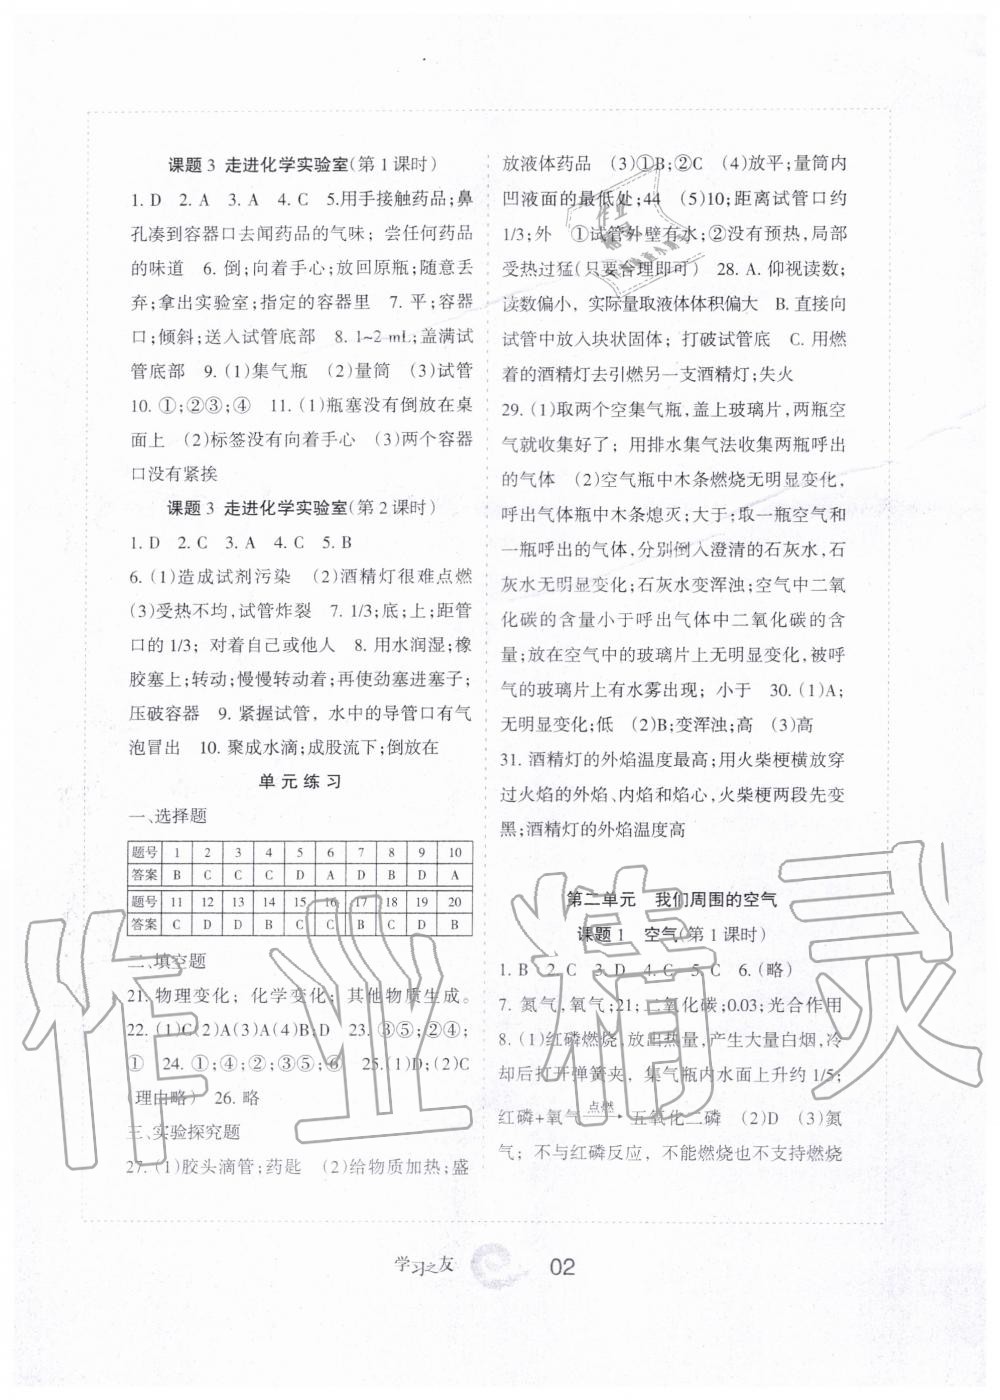 课题 3 走进化学实验室(第 1 课时)
1. D 2. A 3. A 4. C 5.用手接触药品;鼻
孔凑到容器口去闻药品的气味; 尝任何药品
的味道 6. 倒;向着手心;放回原瓶;随意丢
弃;拿出实验室;指定的容器里 7. 平;容器
口;倾斜;送入试管底部 8. 1~2 mL;盖满试
管底部 9. (1)集气瓶 (2)量筒 (3)试管
10. ①;②③;④ 11. (1)瓶塞没有倒放在桌
面上 (2)标签没有向着手心 (3)两个容器
口没有紧挨
课题 3 走进化学实验室(第 2 课时)
1. D 2. C 3. A 4. C 5. B
6. (1)造成试剂污染 (2)酒精灯很难点燃
(3)受热不均,试管炸裂 7. 1/3;底;上;距管
口的 1/3; 对着自己或他人 8. 用水润湿;橡
胶塞上;转动;慢慢转动着;再使劲塞进塞子;
压破容器 9. 紧握试管, 水中的导管口有气
泡冒出 10. 聚成水滴;成股流下;倒放在
单元练习
一、选择题
题号 1 2 3 4 5 6 7 8 9 10
答案 B C C C D A D B D A
题号 11 12 13 14 15 16 17 18 19 20
答案 C D D B C C B C B D
二、填空题
21. 物理变化; 化学变化; 其他物质生成。
22. (1)C(2)A(3)A(4)B;D 23. ③⑤;②④;
① 24. ①;④;②;③⑤;⑥ 25.(1)D;(2)C
(理由略) 26. 略
三、实验探究题
27. (1)胶头滴管;药匙 (2)给物质加热;盛
放液体药品 (3)①B;②C (4)放平;量筒内
凹液面的最低处;44 (5)10;距离试管口约
1/3;外 ①试管外壁有水;②没有预热,局部
受热过猛(只要合理即可) 28. A. 仰视读数;
读数偏小, 实际量取液体体积偏大 B. 直接向
试管中放入块状固体; 打破试管底 C. 用燃
着的酒精灯去引燃另一支酒精灯;失火
29. (1)取两个空集气瓶,盖上玻璃片,两瓶空
气就收集好了; 用排水集气法收集两瓶呼出
的气体 (2)空气瓶中木条燃烧无明显变化,
呼出气体瓶中木条熄灭;大于;取一瓶空气和
一瓶呼出的气体,分别倒入澄清的石灰水,石
灰水无明显变化;石灰水变浑浊;空气中二氧
化碳的含量小于呼出气体中二氧化碳的含
量;放在空气中的玻璃片上无明显变化,被呼
气的玻璃片上有水雾出现; 小于 30. (1)A;
无明显变化;低 (2)B;变浑浊;高 (3)高
31. 酒精灯的外焰温度最高;用火柴梗横放穿
过火焰的外焰、内焰和焰心,火柴梗两段先变
黑;酒精灯的外焰温度高
第二单元 我们周围的空气
课题 1 空气(第 1 课时)
1. B 2. C 3. D 4. C 5. C 6. (略)
7. 氮气,氧气;21;二氧化碳;0.03;光合作用
8. (1)红磷燃烧, 放出热量,产生大量白烟,冷
却后打开弹簧夹, 集气瓶内水面上升约 1/5;
红磷+氧气 点燃→ 五氧化二磷 (2)D (3)氮
气; 不与红磷反应, 不能燃烧也不支持燃烧
学习之友 02
作业精灵